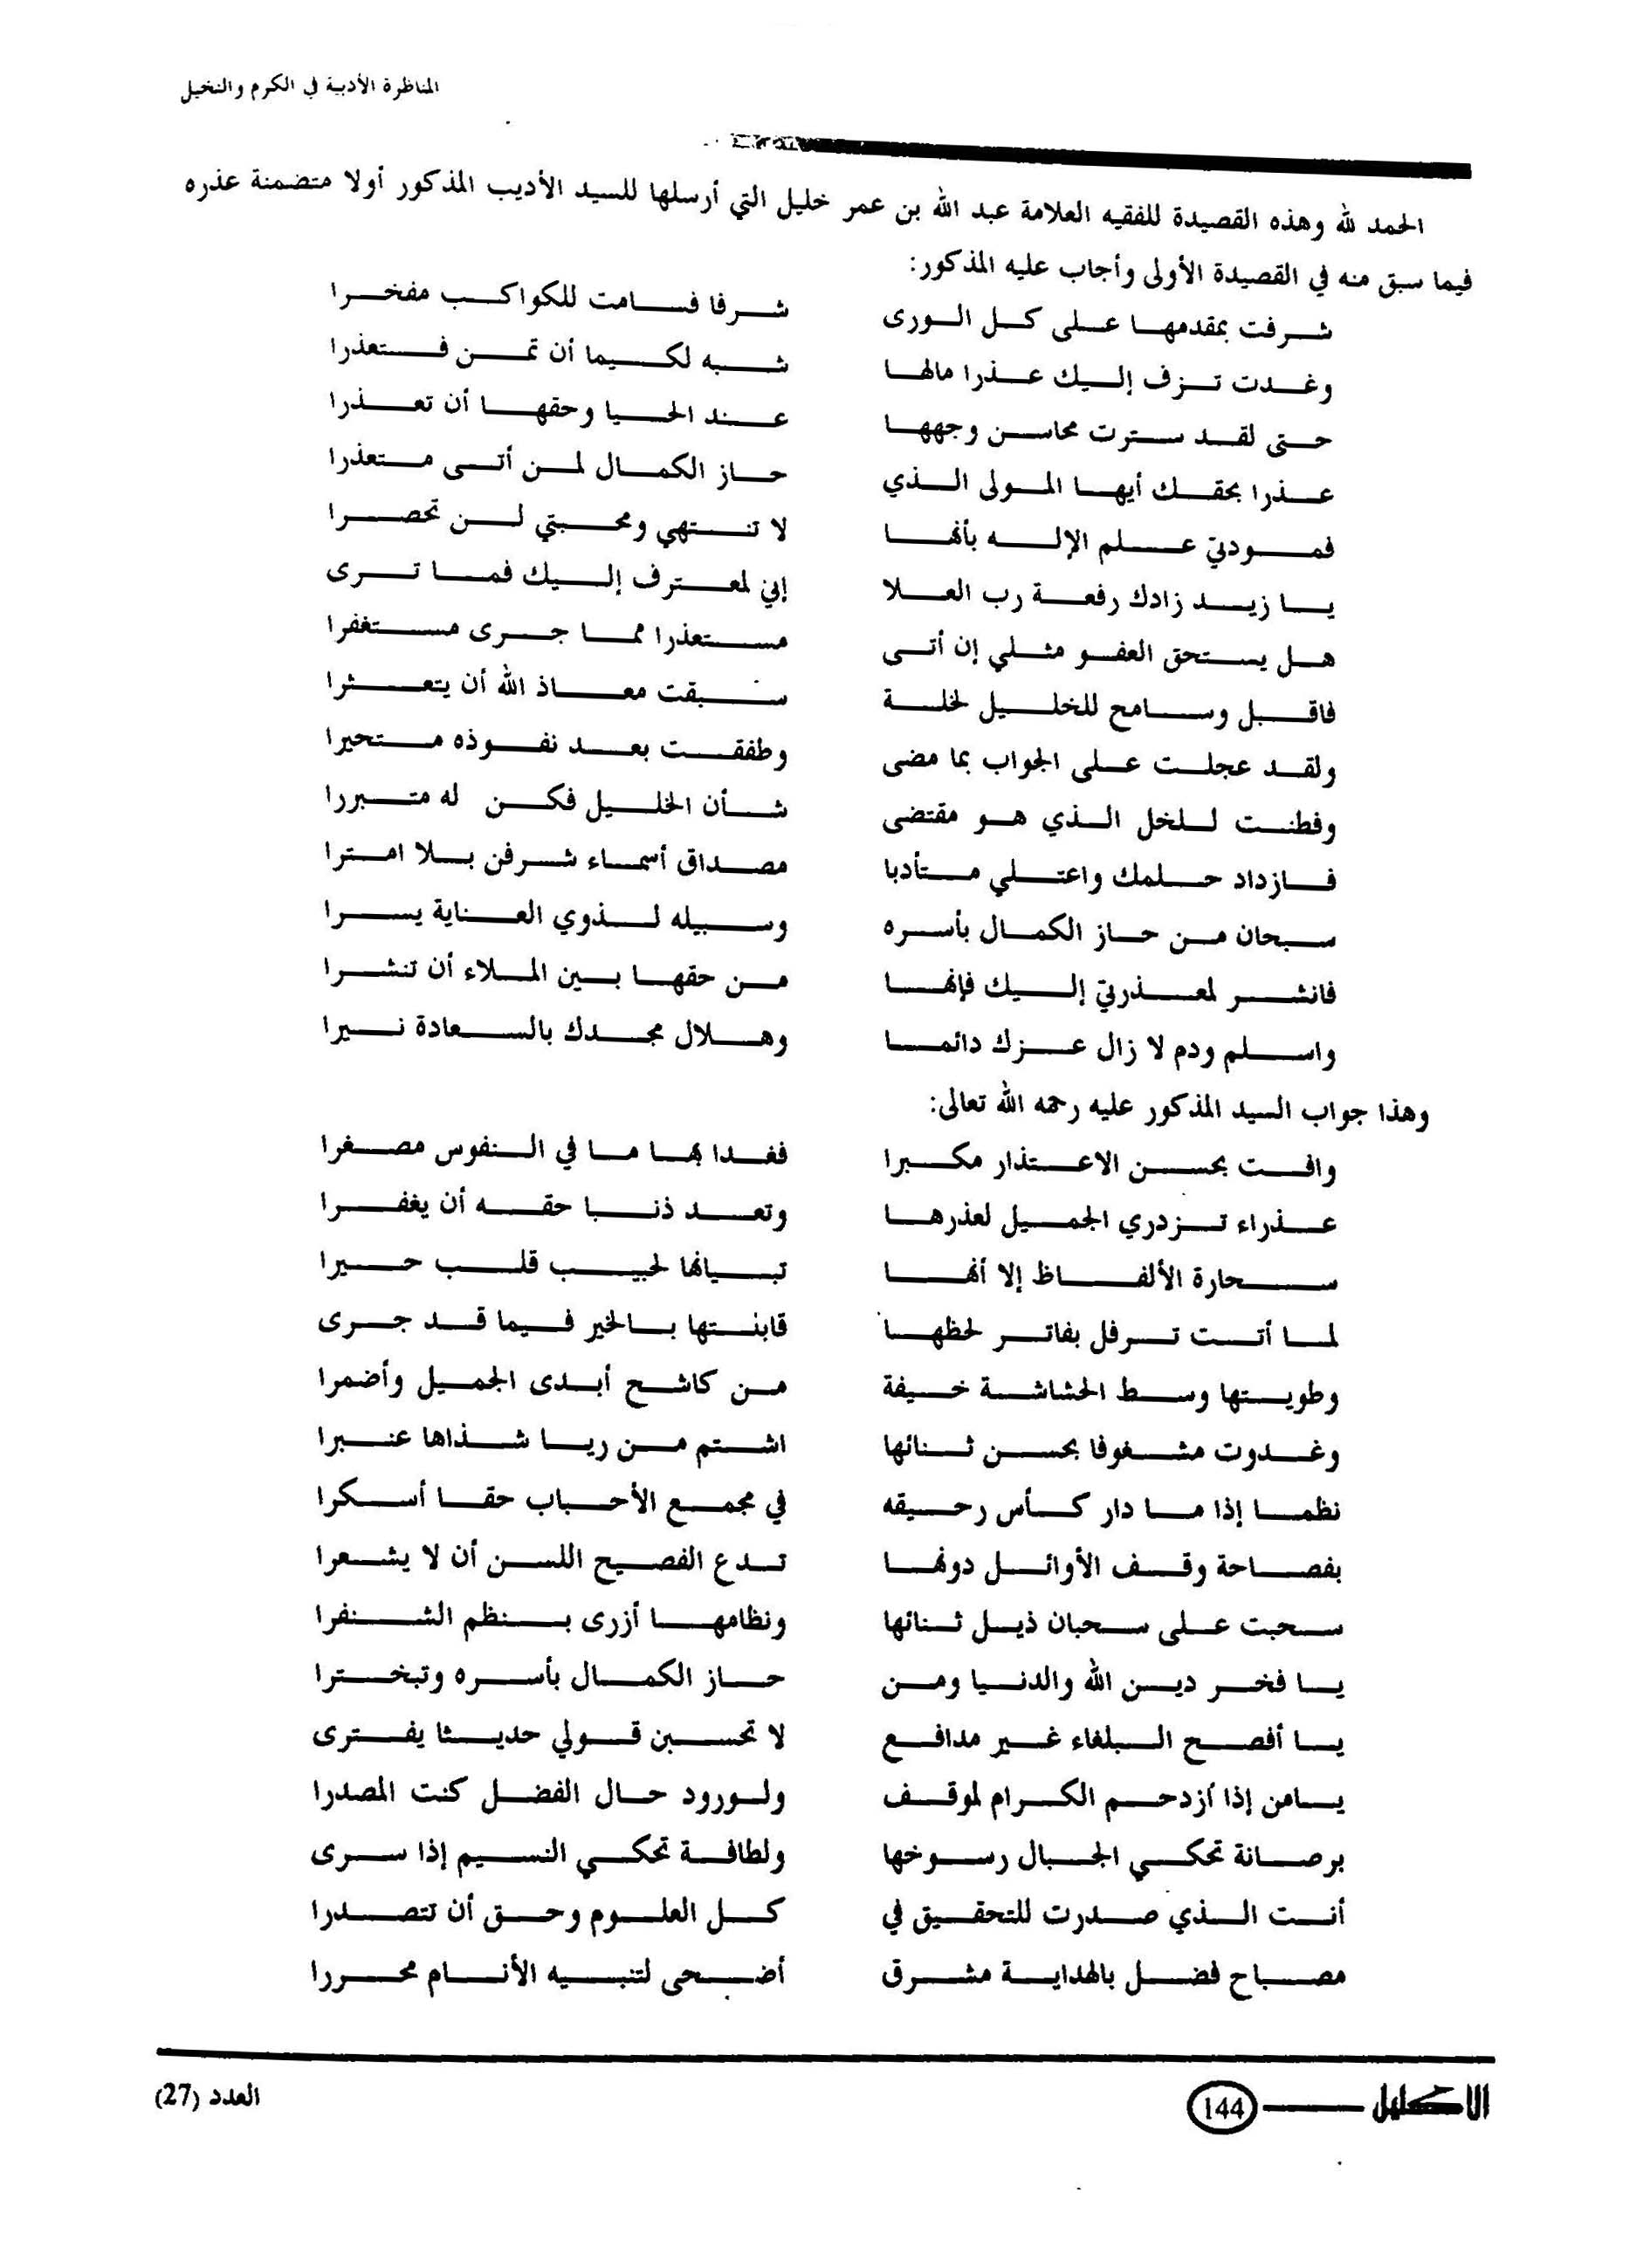 المناظرة الأدبية في الكرم والنخيل
الحمد لله وهذه القصيدة للفقيه العلامة عبد الله بن عمر خليل التي أرسلها للسيد الأديب المذكور أولا متضمنة عذره
فيما سبق منه في القصيدة الأولى وأجاب عليه المذكور:
شرفت بمقدمها على كل الورى شرفا فسامت للكواكب مفخرا
وغدت تزف إليك عذرا مالها شبه لكيما أن تمن فتعذرا
حتى لقد سترت محاسن وجهها عند الحيا وحقها أن تعذرا
عذرا بحقك أيها المولى الذي حاز الكمال لمن أتى متعذرا
فمودتي علم الإله بأنها لا تنتهي ومحبتي لن تحصرا
يا زيد زادك رفعة رب العلا إني لمعترف إليك فما ترى
هل يستحق العفو مثلي إن أتى مستعذرا مما جرى مستغفرا
فاقبل وسامح للخليل لخلة سبقت معاذ الله أن يتعثرا
ولقد عجلت على الجواب بما مضى وطفقت بعد نفوذه متحيرا
وفطنت للخل الذي هو مقتضى شأن الخليل فكن له متبررا
فازداد حلمك واعتلي متأدبا مصداق أسماء شرفن بلا امترا
سبحان من حاز الكمال بأسره وسبيله لذوي العناية يسرا
فانشر لمعذرتي إليك فإنها من حقها بين الملاء أن تنشرا
واسلم ودم لا زال عزك دائما وهلال مجدك بالسعادة نيرا
وهذا جواب السيد المذكور عليه رحمه الله تعالى:
وافت بحسن الاعتذار مكبرا فغدا بها ما في النفوس مصغرا
عذراء تزدري الجميل لعذرها وتعد ذنبا حقه أن يغفرا
سحارة الألفاظ إلا أنها تبيانها لحبيب قلب حيرا
لما أتت ترفل بفاتر لحظها قابنتها بالخير فيما قد جرى
وطويتها وسط الحشاشة خيفة من كاشح أبدى الجميل وأضمرا
وغدوت مشغوفا بحسن ثنائها اشتم من ريا شذاها عنبرا
نظما إذا ما دار كأس رحيقه في مجمع الأحباب حقا أسكرا
بفصاحة وقف الأوائل دونها تدع الفصيح اللسن أن لا يشعرا
سحبت على سحبان ذيل ثنائها ونظامها أزرى بنظم الشنفرا
يا فخر دين الله والدنيا ومن حاز الكمال بأسره وتبخترا
يا أفصح البلغاء غير مدافع لا تحسبن قولي حديثا يفترى
يامن إذا ازدحم الكرام لموقف ولورود حال الفضل كنت المصدرا
برصانة تحكي الجبال رسوخها ولطافة تحكي النسيم إذا سرى
أنت الذي صدرت للتحقيق في كل العلوم وحق أن تتصدرا
مصباح فضل بالهداية مشرق أضحى لتنبيه الأنام محررا
الاكليل 144 العدد (27)